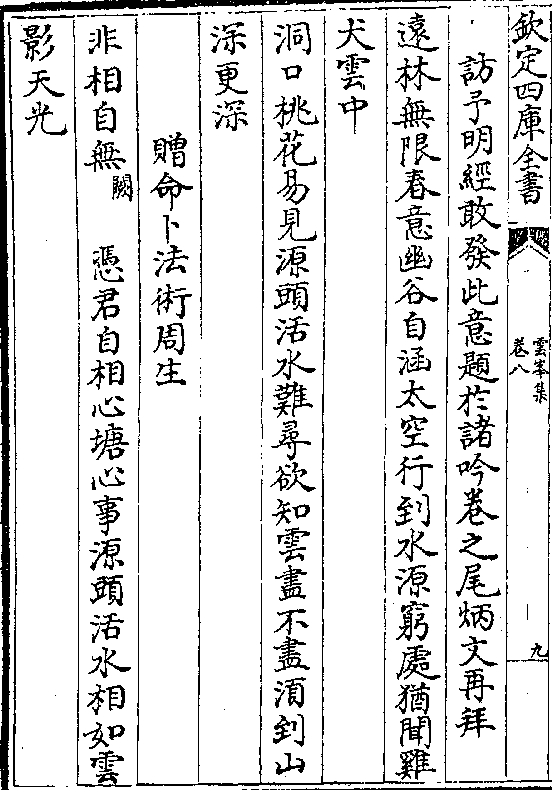 欽定四庫全書
雲峯集
卷八
九
訪予明經敢發此意題於諸吟卷之尾炳文再拜
遠林無限春意幽谷自涵太空行到水源窮處猶聞雞
犬雲中
洞口桃花易見源頭活水難尋欲知雲盡不盡須到山
深更深
贈命卜法術周生
非相自無闕 憑君自相心塘心事源頭活水相如雲
影天光